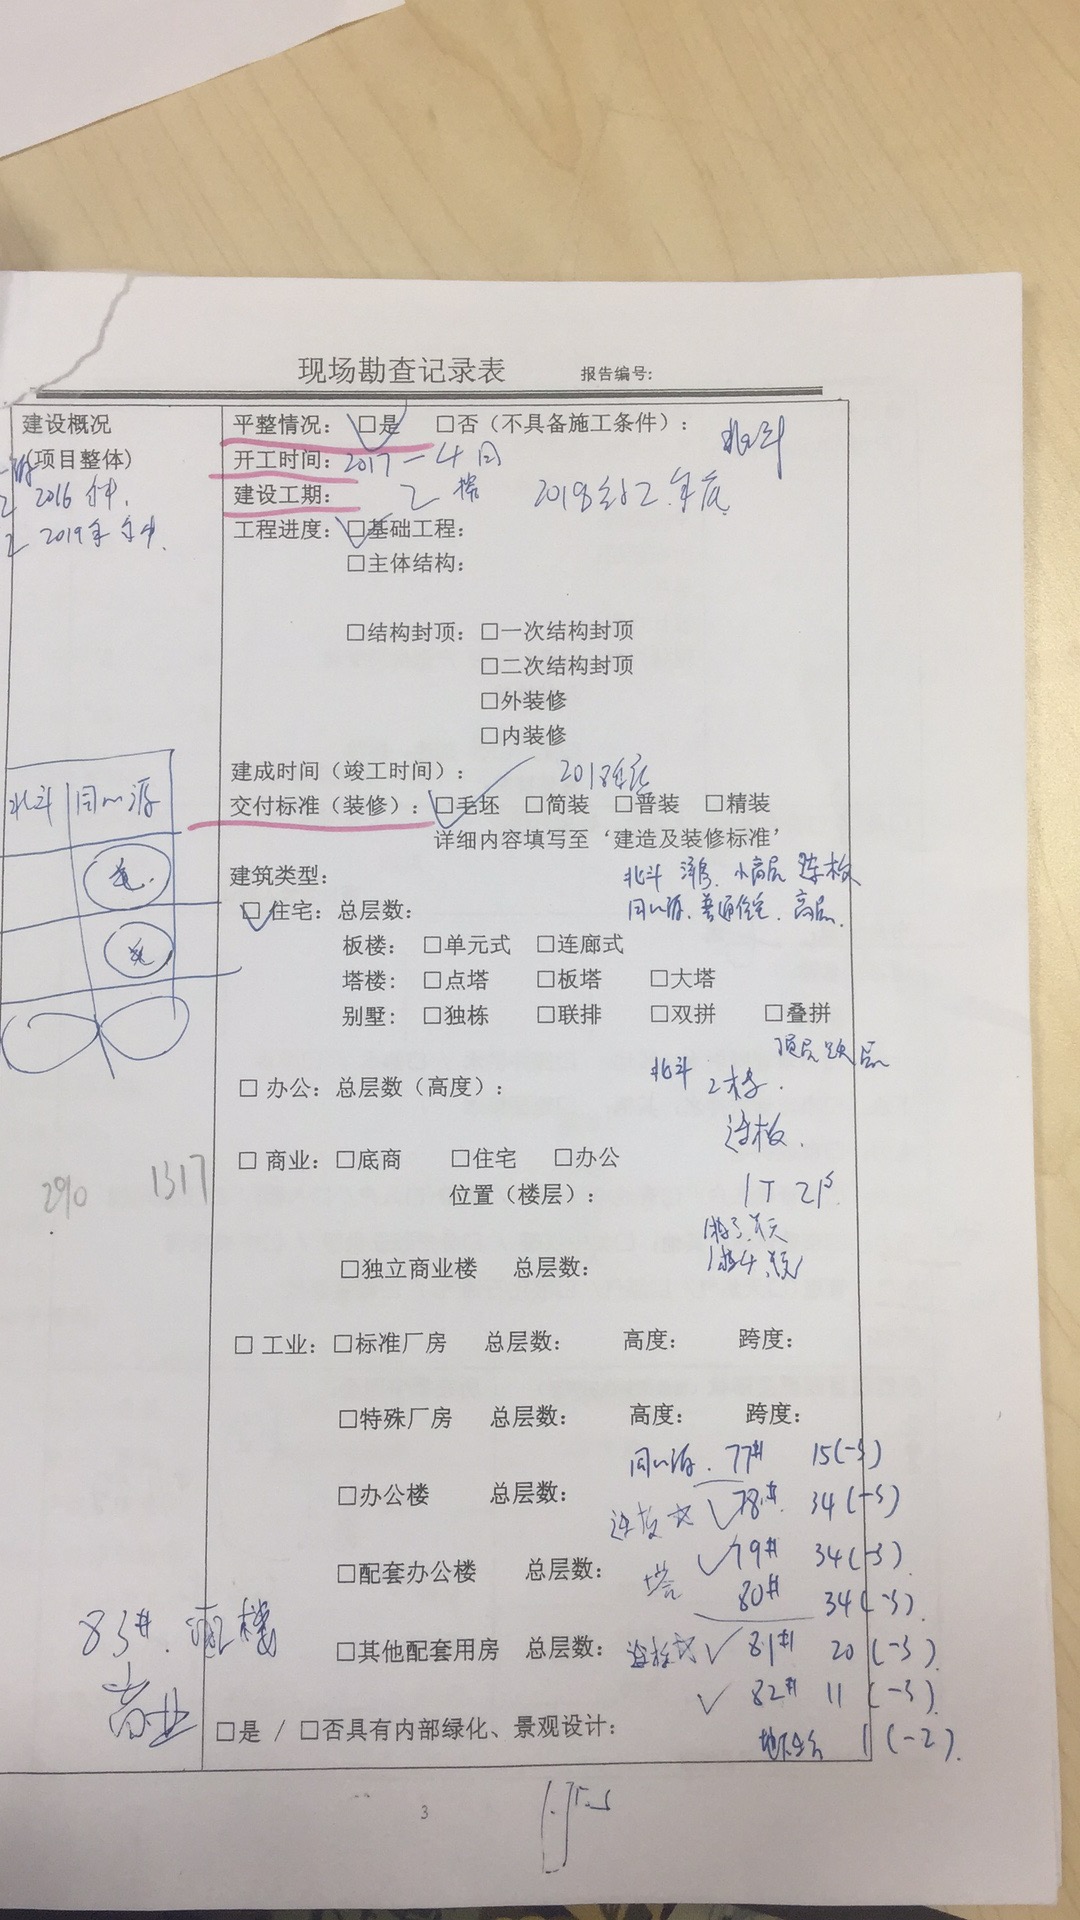 现场勘查记录表 报告编号:
建设概况
(项目整体)
2016 年中.
2019年 年中.
平整情况: □是 □否(不具备施工条件): 北斗
开工时间: 2017 — 4 月
建设工期: 2018 年底
工程进度: □基础工程:
□主体结构:
□结构封顶: □一次结构封顶
□二次结构封顶
□外装修
□内装修
建成时间(竣工时间): 2018年底
交付标准(装修): □毛坯 □简装 □普装 □精装
详细内容填写至‘建造及装修标准’
北斗 同心源
建筑类型:
北斗 洋房. 小高层 连板
同心源. 普通住宅. 高层.
□ 住宅: 总层数:
板楼: □单元式 □连廊式
塔楼: □点塔 □板塔 □大塔
别墅: □独栋 □联排 □双拼 □叠拼
顶层 跃层
□ 办公: 总层数(高度): 北斗 2栋.
连板.
□ 商业: □底商 □住宅 □办公
290 1317
位置(楼层): 1T 2户
□独立商业楼 总层数:
□ 工业: □标准厂房 总层数: 高度: 跨度:
□特殊厂房 总层数: 高度: 跨度:
同心源. 77# 15(-3)
□办公楼 总层数: 78# 34(-3)
79# 34(-3).
□配套办公楼 总层数: 塔 80# 34(-3).
□其他配套用房 总层数: 81# 20 (-3).
82# 11 (-3).
83#. 楼
商业
□是 / □否具有内部绿化、景观设计: 1 (-2).
3